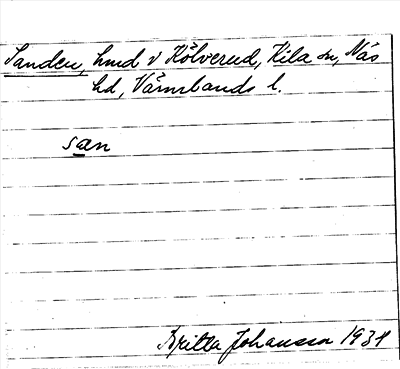 Sanden, hmd v Kölverud, Kila sn, Näs
hd, Värmlands l.
sæn
Britta Johansson 1931